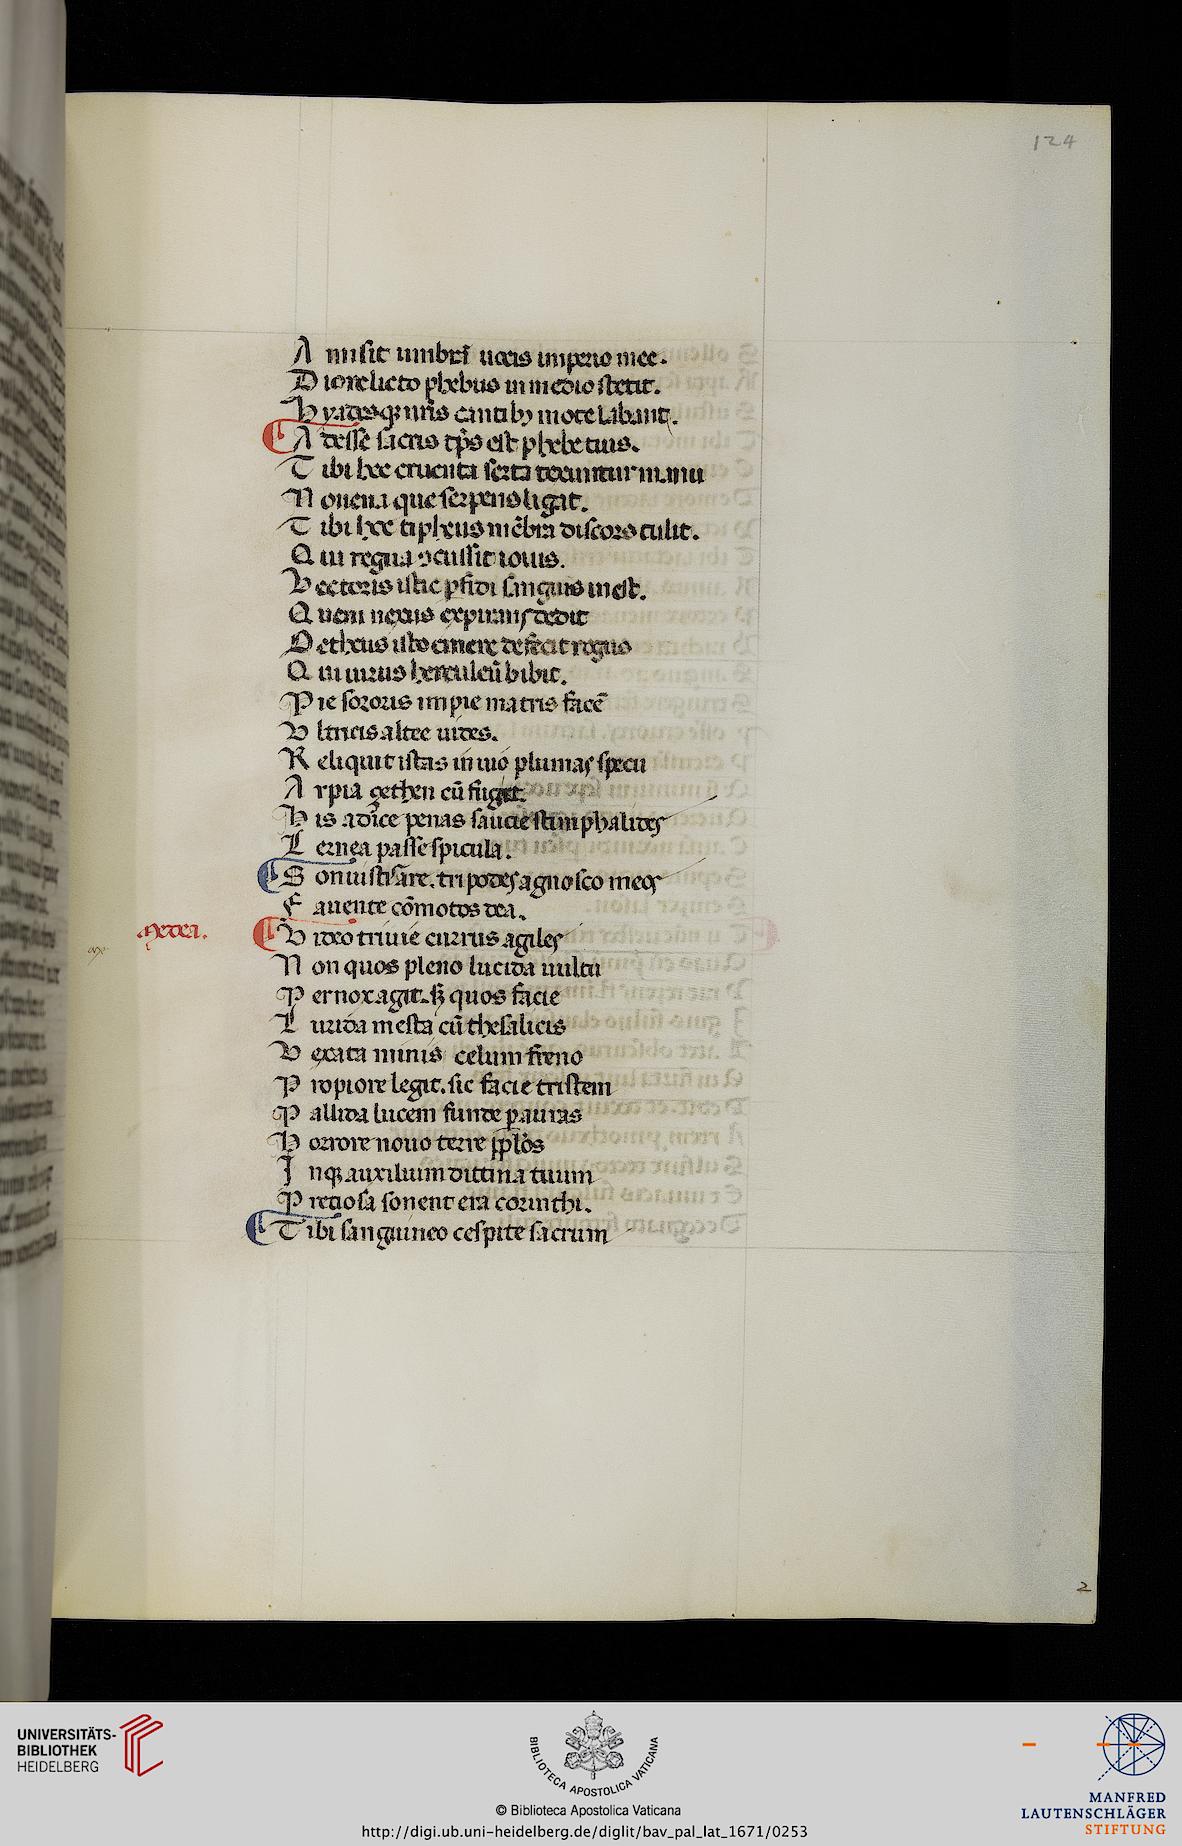 124
A misit umbrā uocis imperio mee.
D ie relicto phebus in medio stetit.
H yadesq; nr̄is cantibꝫ mote labant.
A desse sacris tp̄s est phebe tuis.
T ibi hec cruenta serta texuntur manu
N ouena que serpens ligat.
T ibi hec tipheus mēbra discors tulit.
Q ui regna ꝯcussit iouis.
V ectoris istic ꝑfidi sanguis inest.
Q uem nexus expirans dedit
O etheus isto cinere defecit rogus
Q ui uirus herculeū bibit.
P ie sororis impie matris facē
V ltricis altee uides.
R eliquit istas inuio plumas specu
A rpia zethen cū fugit.
H is adice penas saucie stimphalides
L ernea passe spicula.
S onuistis are. tripodes agnosco meos
F auente cōmotos dea.
Medea.
V ideo triuie currus agiles
N on quos pleno lucida uultu
P ernox agit. sꝫ quos facie
L urida mesta cū thesalicis
V exata minis celum freno
P ropiore legit. sic facie tristem
P allida lucem funde ꝑ auras
H orrore nouo terre pp̄los
I nq; auxilium dictina tuum
P retiosa sonent era corinthi.
T ibi sanguineo cespite sacrum
2
UNIVERSITÄTS-
BIBLIOTHEK
HEIDELBERG
BIBLIOTECA APOSTOLICA VATICANA
© Biblioteca Apostolica Vaticana
http://digi.ub.uni-heidelberg.de/diglit/bav_pal_lat_1671/0253
MANFRED
LAUTENSCHLÄGER
STIFTUNG